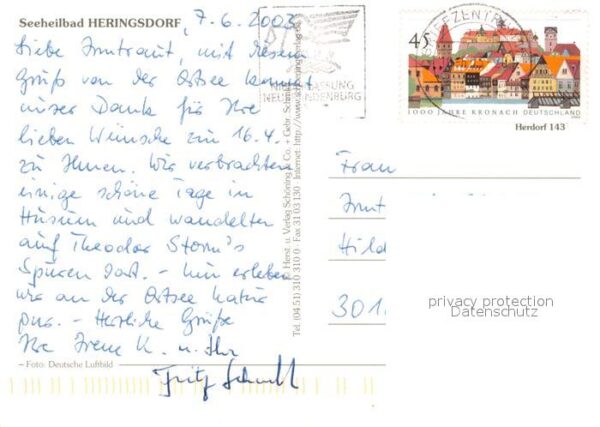 Seeheilbad HERINGSDORF, 7.6.2003
Liebe Irmtraut, mit diesem
Gruß von der Ostsee kommt
unser Dank für Ihre
lieben Wünsche zum 16.4.
zu Ihnen. Wir verbrachten
einige schöne Tage in
Husum und wandelten
auf Theodor Storm's
Spuren dort. - Nun erleben
wir an der Ostsee Natur
pur. - Herzliche Grüße
Ihre Irene K. u. Ihr
Fritz
– Foto: Deutsche Luftbild
Herst. u. Verlag Schöning & Co. + Gebr. Schmidt
Tel. (04 51) 310 310 0 · Fax 31 03 130 · Internet: http://www.schoening-verlag.de
BRIEFZENTRUM
NIEDERLASSUNG
NEUBRANDENBURG
45
1000 JAHRE KRONACH DEUTSCHLAND
Herdorf 143
Frau
Irmt
Hild
301
privacy protection
Datenschutz